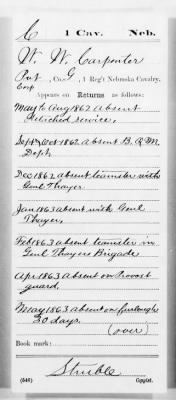 C | 1 Cav. | Neb.
W. W. Carpenter
Pvt Corp, Co. G, 1 Reg't Nebraska Cavalry.
Appears on Returns as follows:
May to Aug 1862 absent
Detached service.
Sept & Oct 1862 absent
Dept
Dec 1862 absent teamster with
Genl Thayer
Jan 1863 absent with Genl
Thayer,
Feb 1863 absent teamster in
Genl Thayers Brigade
Apr 1863 absent on Provost
guard.
May 1863 absent on furlough
30 days.
(over)
Book mark:
Struble
(546) Copyist.